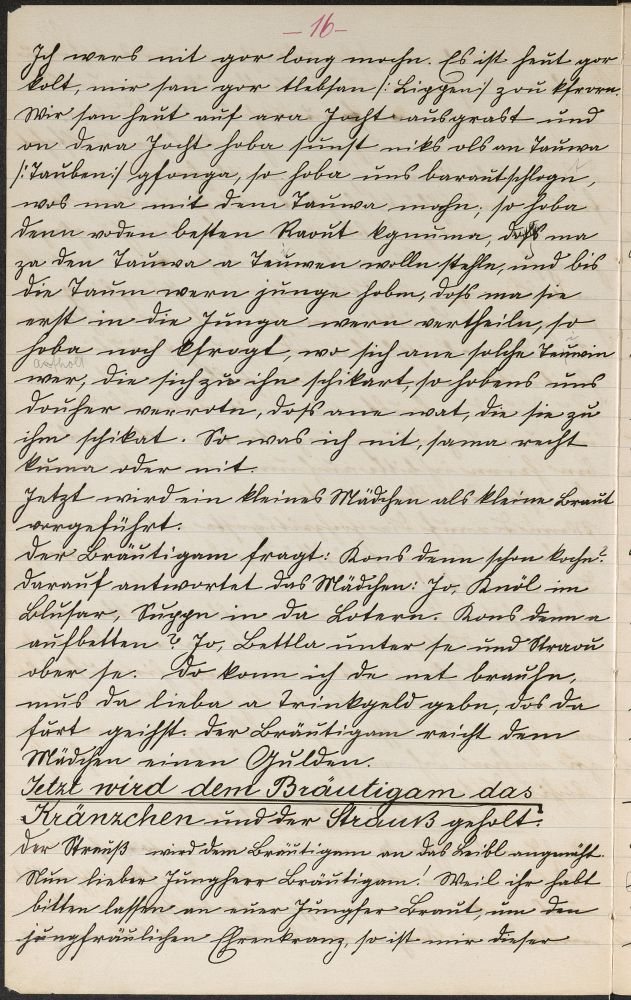 - 16 -
Ich wers nit gor long mochn. Es ist heut gor
kolt, mir san gor klebsan /: Lippen :/ zou kfrorn.
Wir san heut auf ara Jocht ausgrast und
on dera Jocht hoba sunst niks ols an Tauwa
/: Tauben :/ gfonga, so hoba uns baratschlogn,
wos ma mit dem Tauwa mochn; so hoba
denn voden besten Raout kgnuma, doß ma
za den Tauwa a Teuwen wolln stehln, und bis
die Taum wern junge hobm, doß ma sie
erst in die Junga wern vertheiln, so
hoba noch kfrogt, wo sich ane solche Teuwin
aufholt
wer, die sich zu ihn schikart, so hobens uns
douher verrotn, doß ane wat, die sie zu
ihm schikat. So was ich nit, sama recht
kuma oder nit.
Jetzt wird ein kleines Mädchen als kleine Braut
vorgeführt.
Der Bräutigam fragt: Kons denn schon kochn?
Darauf antwortet das Mädchen: Jo, Knöl im
Blusar, Suppn in da Lotern. Kons denn a
aufbetten? Jo, Bettla unter se und Straou
ober se. Do konn ich de net brauchn,
mus da lieba a Trinkgeld gebn, dos da
fürt geihst. Der Bräutigam reicht dem
Mädchen einen Gulden.
Jetzt wird dem Bräutigam das
Kränzchen und der Strauß geholt.
Der Strauß wird dem Bräutigam an das Leibl angenäht.
Nun lieber Jungherr Bräutigam! Weil ihr habt
bitten lassen an euer Jungfer Braut, um den
jungfräulichen Ehrenkranz, so ist mir dieser